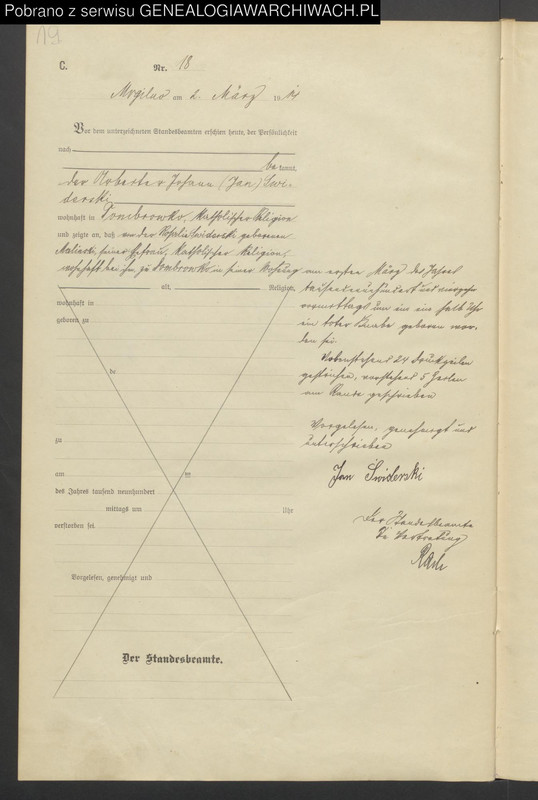 Pobrano z serwisu GENEALOGIAWARCHIWACH.PL
19
C.
Nr. 18
am 2. März 19
Vor dem unterzeichneten Standesbeamten erschien heute, der Persönlichkeit
nach
be kannt,
der Arbeiter Johann (Jan) Swi-
derski
wohnhaft in Dombrowko, katholischer Religion
und zeigte an, daß von der Swiderski geborenen
seiner Ehefrau, katholischer Religion,
wohnhaft bei ihm, zu Dombrowko in seiner Wohnung am ersten März des Jahres
tausend neunhundert und
vormittags um ein ein halb Uhr
ein toter Knabe geboren wor-
den sei.
alt, Religion,
wohnhaft in
geboren zu
Vorstehend 24 Druckzeilen
gestrichen, vorstehend 5 Zeilen
am Rande geschrieben
de
Vorgelesen, genehmigt und
unterschrieben
zu
Jan Świderski
am ten
des Jahres tausend neunhundert
mittags um Uhr
verstorben sei.
Der Standesbeamte
In Vertretung
Vorgelesen, genehmigt und
Der Standesbeamte.